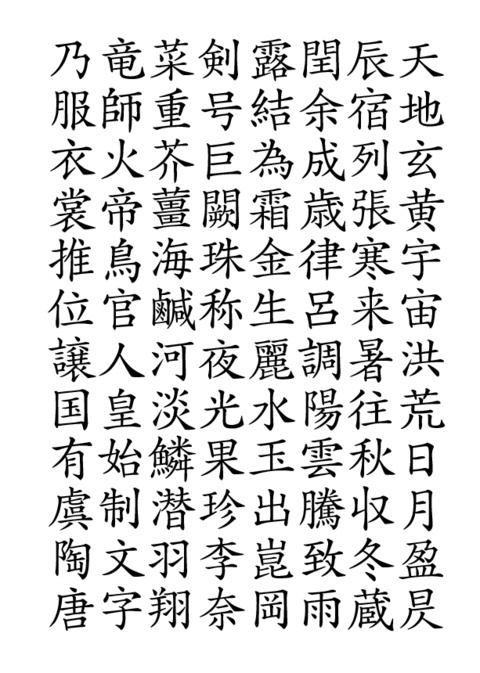 天地玄黄宇宙洪荒日月盈昃
辰宿列張寒来暑往秋収冬蔵
閏余成歳律呂調陽雲騰致雨
露結為霜金生麗水玉出崑岡
剣号巨闕珠称夜光果珍李奈
菜重芥薑海鹹河淡鱗潜羽翔
竜師火帝鳥官人皇始制文字
乃服衣裳推位譲国有虞陶唐